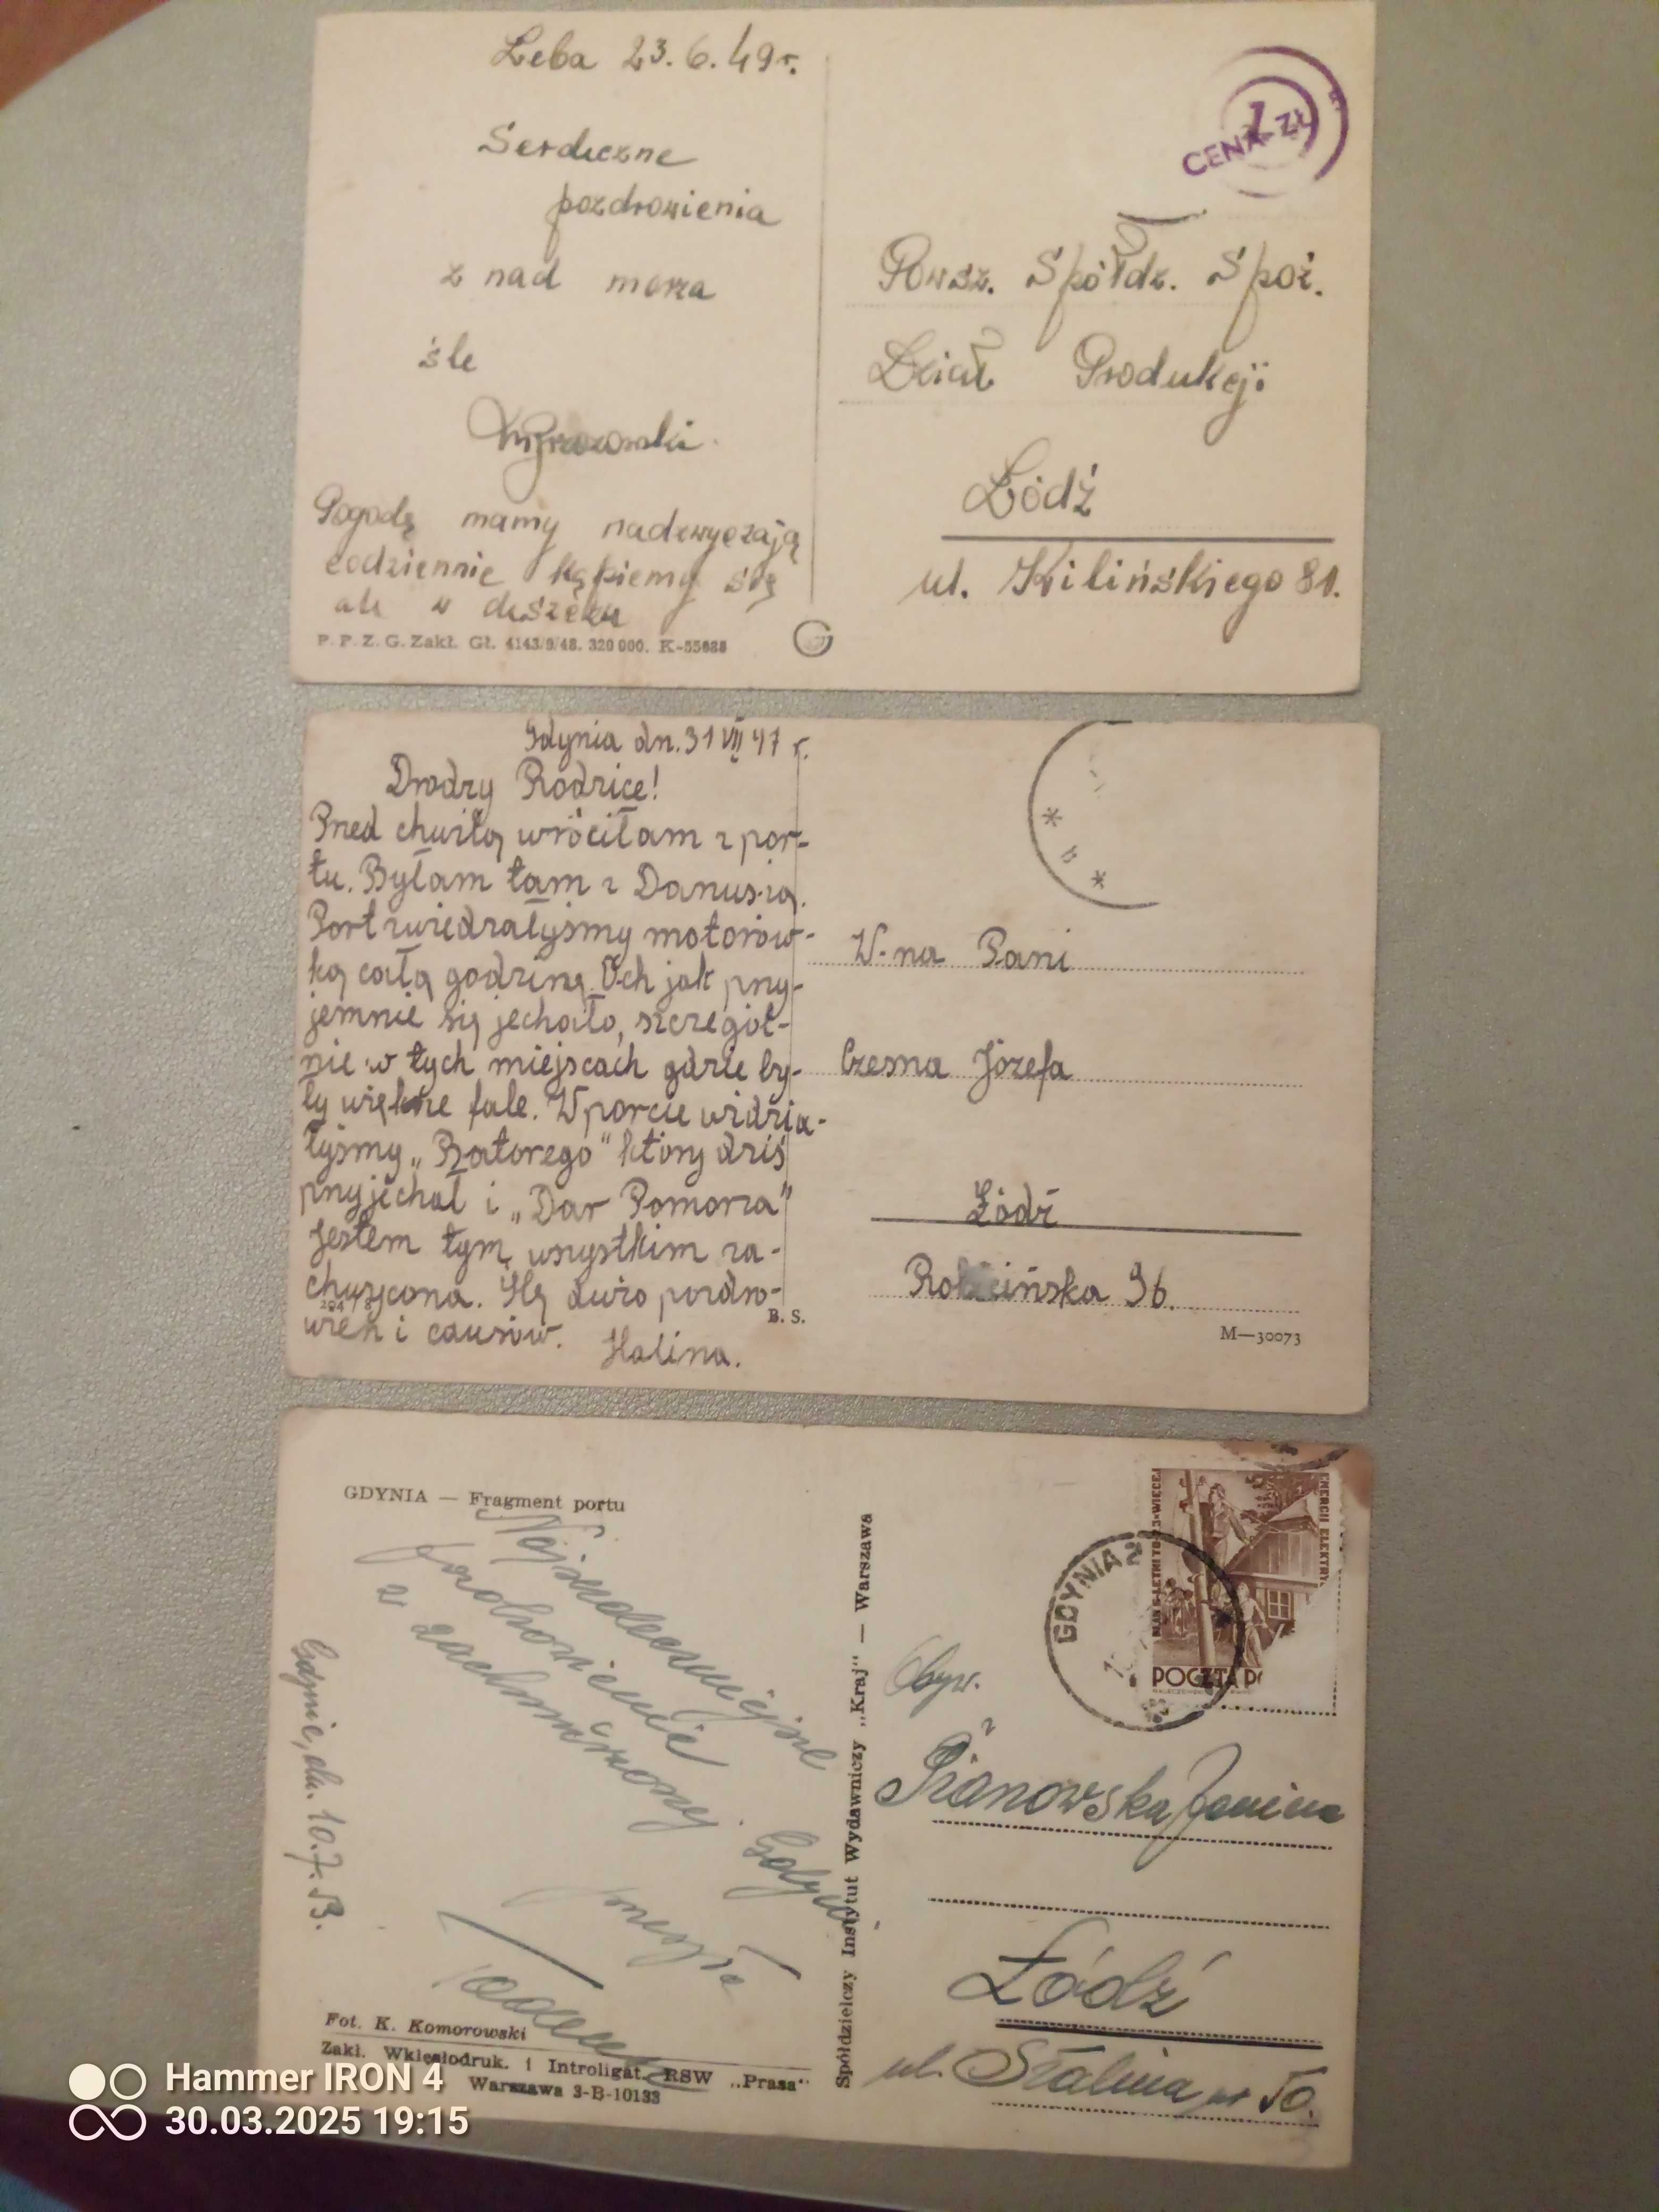 Łeba 23.6.49r.
Serdeczne
pozdrowienia
z nad morza
śle
Pogodę mamy nadzwyczają
codziennie kąpiemy się
ale w deszczu
P. P. Z. G. Zakł. Gł. 4143/9/48. 320 000. K-55688
1
CENA ZŁ
Powsz. Spółdz. Spoż.
Dział Produkcji
Łódź
ul. Kilińskiego 81.
Gdynia dn. 31 VII 47 r.
Drodzy Rodzice!
Przed chwilą wróciłam z por-
tu. Byłam tam z Danusią.
Port zwiedzałyśmy motorów-
ką całą godzinę. Och jak przy-
jemnie się jechało, szczegól-
nie w tych miejscach gdzie by-
ły większe fale. W porcie widzia-
łyśmy „Batorego" który dziś
przyjechał i „Dar Pomorza"
Jestem tym wszystkim za-
chwycona. Ślę dużo pozdro-
wień i całusów. Halina.
B. S.
W-na Pani
Czesna Józefa
Łódź
36.
M—30073
GDYNIA — Fragment portu
Najserdeczniejsze
pozdrowienia
z zachmurzonej
Gdyni
Gdynia, dn. 10.7.53.
Fot. K. Komorowski
Zakł. Wklęsłodruk. i Introligat. RSW „Prasa"
Warszawa 3-B-10133
Spółdzielczy Instytut Wydawniczy „Kraj" — Warszawa
GDYNIA 2
POCZTA PO
Obyw.
Pianowska Janina
Łódź
ul. Stalina nr 50.
Hammer IRON 4
30.03.2025 19:15